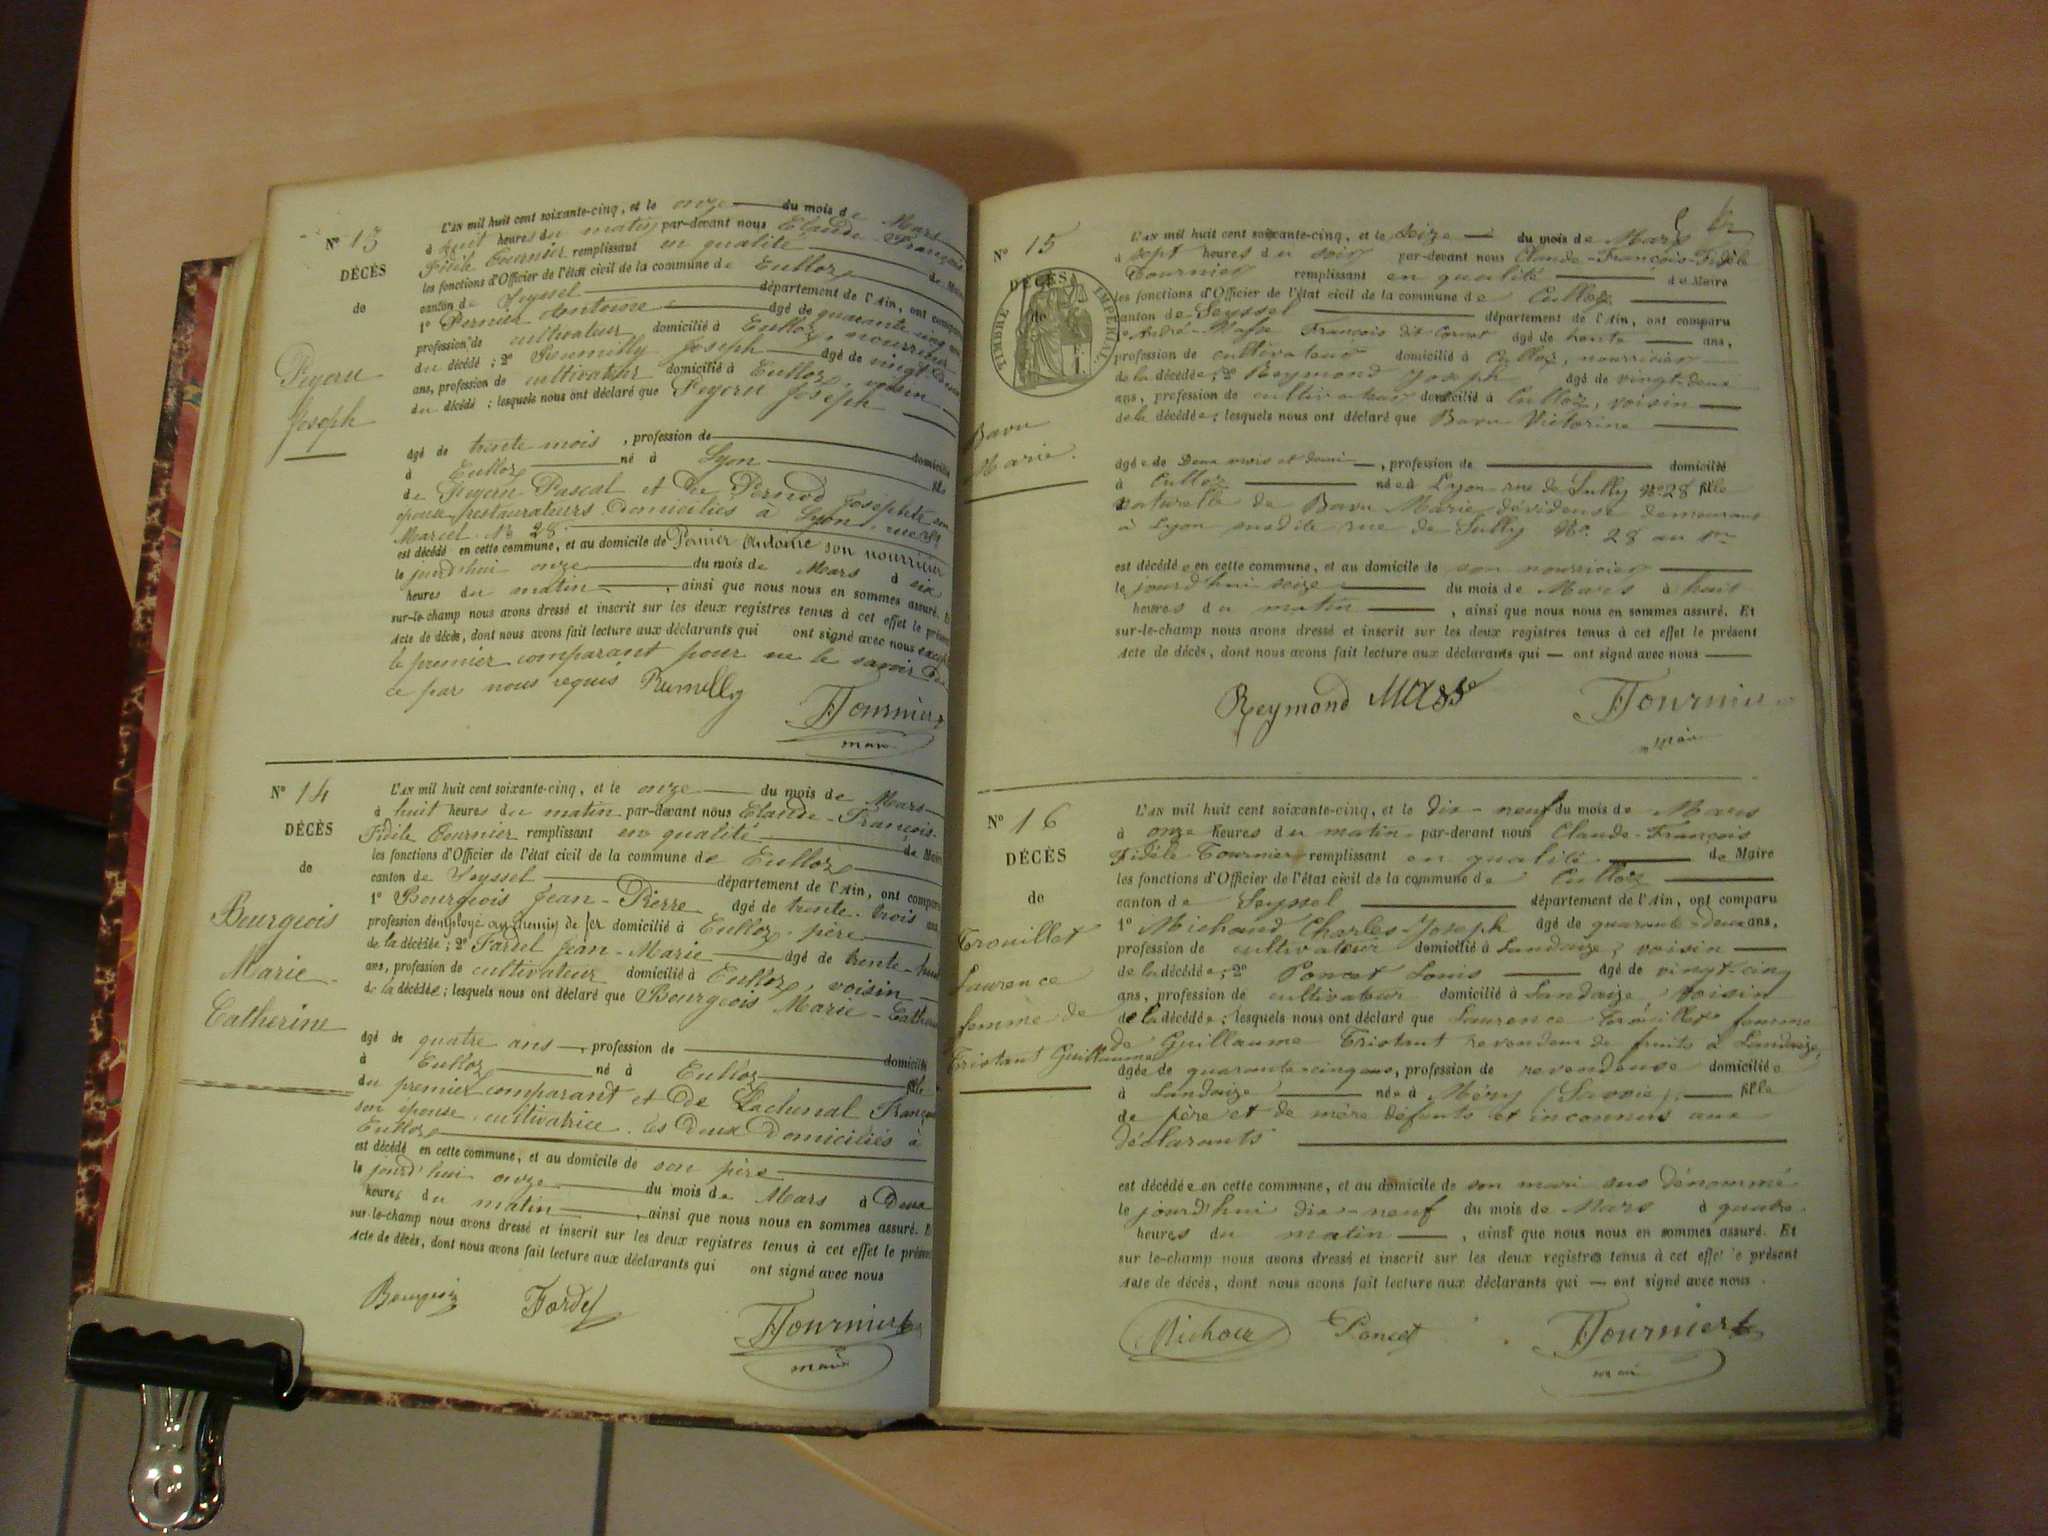 N° 13
DÉCÈS
de
Joseph
L'AN mil huit cent soixante-cinq, et le onze du mois de Mars
à huit heures du matin par-devant nous Claude-François
Fidèle Fournier remplissant en qualité de Maire
les fonctions d'Officier de l'état civil de la commune de Culloz
canton de Seyssel département de l'Ain, ont comparu
1° Pernier Antoine âgé de quarante cinq ans
profession de cultivateur domicilié à Culloz, nourricier
du décédé ; 2° Joseph âgé de vingt
ans, profession de cultivateur domicilié à Culloz, voisin
du décédé ; lesquels nous ont déclaré que Joseph
âgé de trente mois, profession de domicilié
à Culloz né à Lyon fils
de Pascal et de Pernod Josephte son
épouse restaurateurs domiciliés à Lyon, rue St
Marcel N° 28
est décédé en cette commune, et au domicile de Pernier Antoine son nourricier
le jourd'hui onze du mois de Mars à six
heures du matin, ainsi que nous nous en sommes assuré. Et
sur-le-champ nous avons dressé et inscrit sur les deux registres tenus à cet effet le présent
acte de décès, dont nous avons fait lecture aux déclarants qui ont signé avec nous excepté
le premier comparant pour ne le savoir de
ce par nous requis Rumilly
Fournier
maire
N° 14
DÉCÈS
de
Bourgeois
Marie
Catherine
L'AN mil huit cent soixante-cinq, et le onze du mois de Mars
à huit heures du matin par-devant nous Claude-François
Fidèle Fournier remplissant en qualité de Maire
les fonctions d'Officier de l'état civil de la commune de Culloz
canton de Seyssel département de l'Ain, ont comparu
1° Bourgeois Jean-Pierre âgé de trente-trois ans
profession d'employé au chemin de fer domicilié à Culloz, père
de la décédée ; 2° Fardel Jean-Marie âgé de trente-huit
ans, profession de cultivateur domicilié à Culloz, voisin
de la décédée ; lesquels nous ont déclaré que Bourgeois Marie-Catherine
âgé de quatre ans, profession de domiciliée
à Culloz né à Culloz fille
du premier comparant et de Lachenal Françoise
son épouse, cultivatrice, les deux domiciliés à
Culloz
est décédé en cette commune, et au domicile de son père
le jourd'hui onze du mois de Mars à deux
heures du matin, ainsi que nous nous en sommes assuré. Et
sur-le-champ nous avons dressé et inscrit sur les deux registres tenus à cet effet le présent
acte de décès, dont nous avons fait lecture aux déclarants qui ont signé avec nous
Bourgeois Fardel
Fournier
maire
N° 15
DÉCÈS
de
TIMBRE IMPÉRIAL
Bavu
Marie.
L'AN mil huit cent soixante-cinq, et le seize du mois de Mars
à sept heures du soir par-devant nous Claude-François-Fidèle
Fournier remplissant en qualité de Maire
les fonctions d'Officier de l'état civil de la commune de Culloz
canton de Seyssel département de l'Ain, ont comparu
François dit Cornet âgé de trente ans,
profession de cultivateur domicilié à Culloz, nourricier
de la décédée ; 2° Reymond Joseph âgé de vingt-deux
ans, profession de cultivateur domicilié à Culloz, voisin
de la décédée ; lesquels nous ont déclaré que Bavu Victorine
âgée de Deux mois et demi, profession de domicilié
à Culloz née à Lyon rue de Sully N° 28 fille
naturelle de Bavu Marie dévideuse demeurant
à Lyon susdite rue de Sully N° 28 au 1er
est décédée en cette commune, et au domicile de son nourricier
le jourd'hui seize du mois de Mars à huit
heures du matin, ainsi que nous nous en sommes assuré. Et
sur-le-champ nous avons dressé et inscrit sur les deux registres tenus à cet effet le présent
acte de décès, dont nous avons fait lecture aux déclarants qui ont signé avec nous
Reymond Masse Fournier
maire
N° 16
DÉCÈS
de
Trouillet
Laurence
femme de
Tristant Guillaume
L'AN mil huit cent soixante-cinq, et le dix-neuf du mois de Mars
à onze heures du matin par-devant nous Claude-François
Fidèle Fournier remplissant en qualité de Maire
les fonctions d'Officier de l'état civil de la commune de Culloz
canton de Seyssel département de l'Ain, ont comparu
1° Michaud Charles-Joseph âgé de quarante-deux ans,
profession de cultivateur domicilié à Landaize, voisin
de la décédée ; 2° Poncet Louis âgé de vingt-cinq
ans, profession de cultivateur domicilié à Landaize, voisin
de la décédée ; lesquels nous ont déclaré que Laurence Trouillet femme
de Guillaume Tristant revendeur de fruits à Landaize,
âgée de quarante-cinq ans, profession de revendeuse domiciliée
à Landaize née à Méry (Savoie) fille
de père et de mère défunts et inconnus aux
déclarants
est décédée en cette commune, et au domicile de son mari sus dénommé
le jourd'hui dix-neuf du mois de Mars à quatre
heures du matin, ainsi que nous nous en sommes assuré. Et
sur le-champ nous avons dressé et inscrit sur les deux registres tenus à cet effet le présent
acte de décès, dont nous avons fait lecture aux déclarants qui — ont signé avec nous.
Poncet Fournier